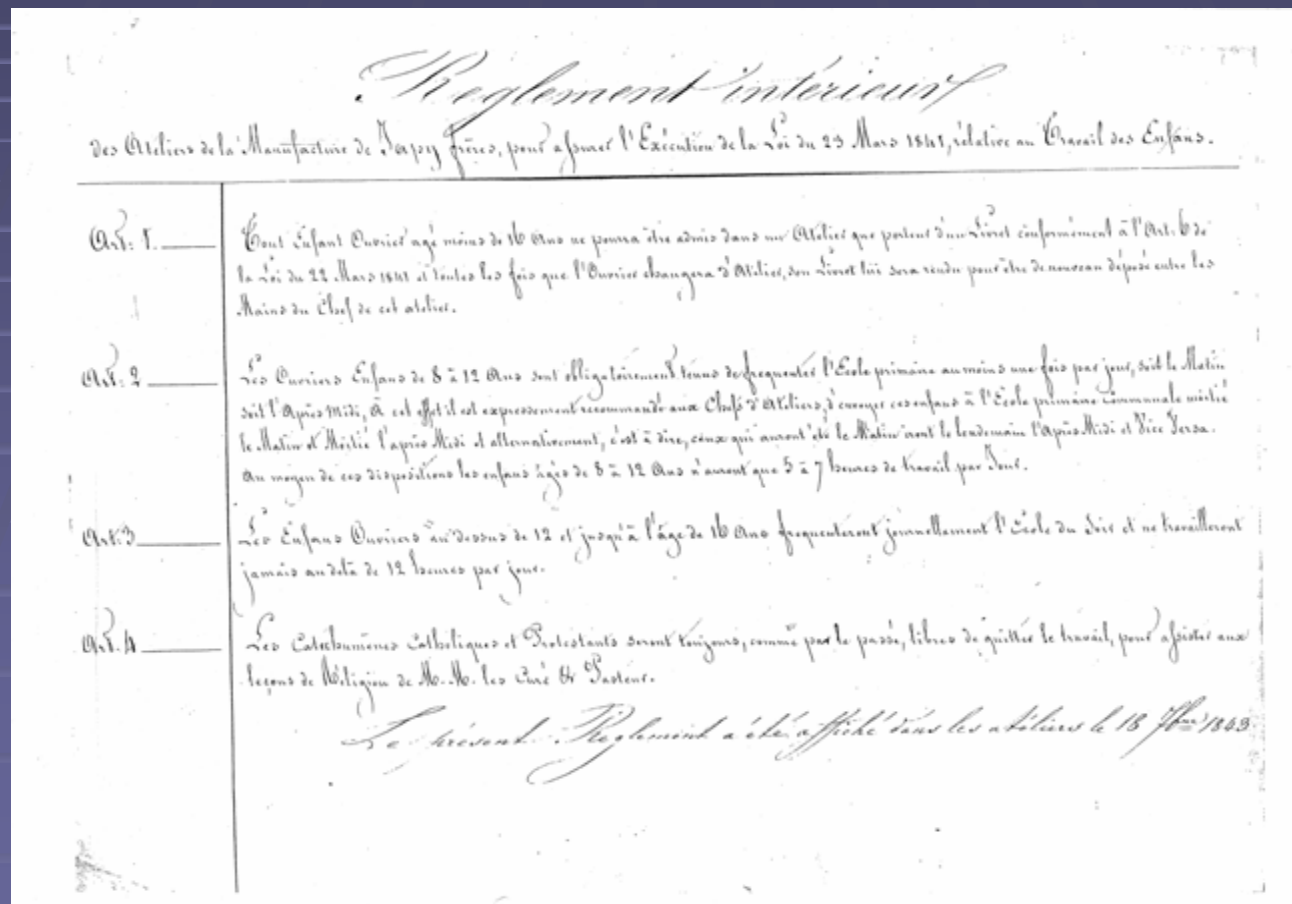 Reglement intérieur
des Ateliers de la Manufacture de Japy frères, pour assurer l'Exécution de la Loi du 23 Mars 1841, rélative au Travail des Enfans.
Art: 1. Tout Enfant Ouvrier agé moins de 16 Ans ne pourra être admis dans un Atelier que porteur d'un Livret conformément à l'Art. 6 de
la Loi du 22 Mars 1841 et toutes les fois que l'Ouvrier changera d'Atelier, son Livret lui sera rendu pour être de nouveau déposé entre les
Mains du Chef de cet atelier.
Art: 2 Les Ouvriers Enfans de 8 à 12 Ans sont obligatoirement tenus de frequenter l'Ecole primaire au moins une fois par jour, soit le Matin
soit l'Après midi, A cet effet il est expressement recommandé aux Chefs d'Ateliers, d'envoyer ces enfans à l'Ecole primaire Communale moitié
le Matin et Moitié l'après Midi et alternativement, c'est à dire, ceux qui auront été le Matin iront le lendemain l'Après Midi et Vice Versa.
Au moyen de ces dispositions les enfans âgés de 8 à 12 Ans n'auront que 5 à 7 heures de travail par Jour.
Art: 3 Les Enfans Ouvriers au dessus de 12 et jusqu'à l'âge de 16 Ans frequenteront journellement l'Ecole du Soir et ne travailleront
jamais au delà de 12 heures par jour.
Art. 4 Les Catechumènes Catholiques et Protestants seront toujours, comme par le passé, libres de quitter le travail, pour assister aux
leçons de Religion de M. M. les Curé & Pasteur.
Le présent Reglement a été affiché dans les atéliers le 18 7bre 1843